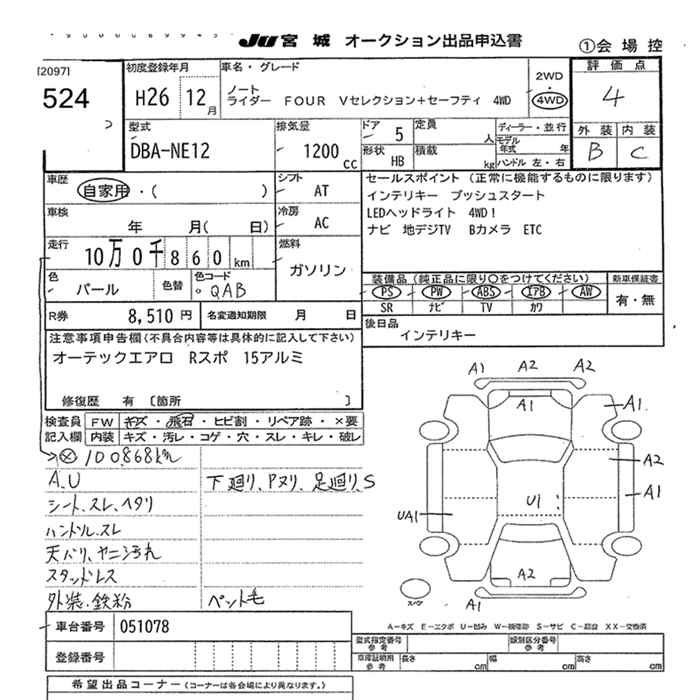 JU宮城 オークション出品申込書
①会場控
[2097]
524
初度登録年月
H26 12月
車名・グレード
ノート
ライダー FOUR Vセレクション+セーフティ 4WD
2WD
・
4WD
評価点
4
外装 内装
B C
型式
DBA-NE12
排気量
1200 cc
ドア 5
定員 人
形状 HB
積載 kg
ディーラー・並行
モデル年式 年
ハンドル 左・右
車歴
自家用・( )
シフト
AT
車検
年 月( 日)
冷房
AC
走行
10万0千860km
燃料
ガソリン
色
パール
色替
色コード
QAB
R券 8,510円
名変通知期限 月 日
セールスポイント (正常に機能するものに限ります)
インテリキー プッシュスタート
LEDヘッドライト 4WD!
ナビ 地デジTV Bカメラ ETC
装備品 (純正品に限り○をつけてください)
PS PW ABS エアB AW
SR ナビ TV カワ
新車保証書
有・無
後日品
インテリキー
注意事項申告欄(不具合内容等は具体的に記入して下さい)
オーテックエアロ Rスポ 15アルミ
修復歴 有 〔箇所 〕
検査員
記入欄
FW キズ・飛石・ヒビ割・リペア跡・×要
内装 キズ・汚レ・コゲ・穴・スレ・キレ・破レ
ⓧ100,868km
A.U
下廻り、Pヌリ、足廻り.S
シート.スレ.ヘタリ
ハンドル.スレ
天バリ、ヤニ汚れ
スタッドレス
外装.鉄粉
ペント毛
A1 A2 A2
A1
A1
A2
A1
U1
UA1
A2
A1
スペア
A-キズ E-エクボ U-凹み W-補修跡 S-サビ C-腐食 XX-交換済
車台番号 051078
登録番号
型式指定番号
参考
類別区分番号
参考
車庫証明用
参考
長さ cm
幅 cm
高さ cm
希望出品コーナー (コーナーは各会場により異なります。)